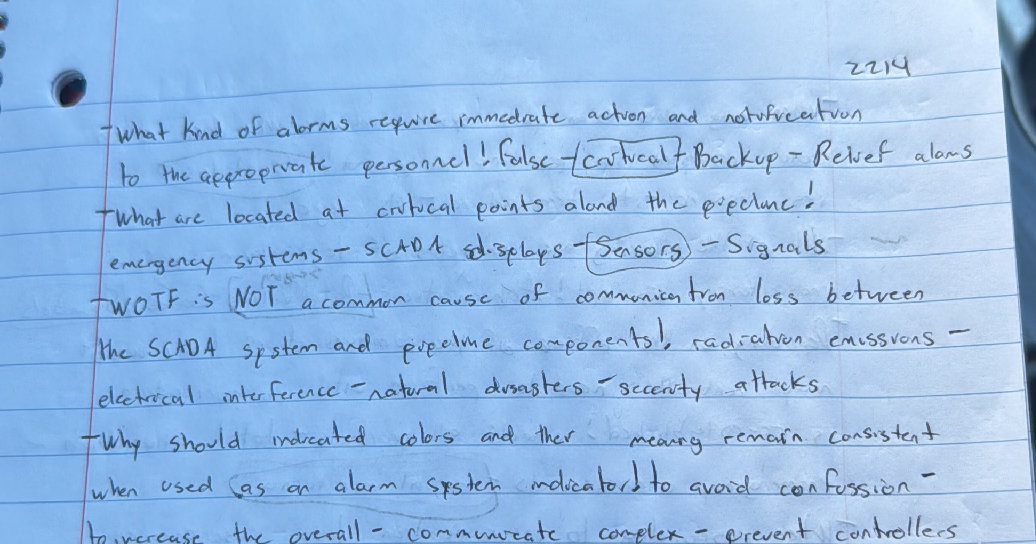 2214
-What Kind of alarms require immediate action and notification
to the appropriate personnel! false - critical - Backup - Relief alams
-What are located at critical points alond the pipeline!
emergency systems - SCADA displays - Sensors - Signals
-WOTF is NOT a common cause of communication loss between
the SCADA system and pipeline components!, radiation emissions -
electrical interference - natural disasters - scecuruty attacks
-Why should indicated colors and ther meaning remain consistent
when used as an alarm system indicator! to avoid confussion -
to increase the overall - communicate complex - prevent controllers